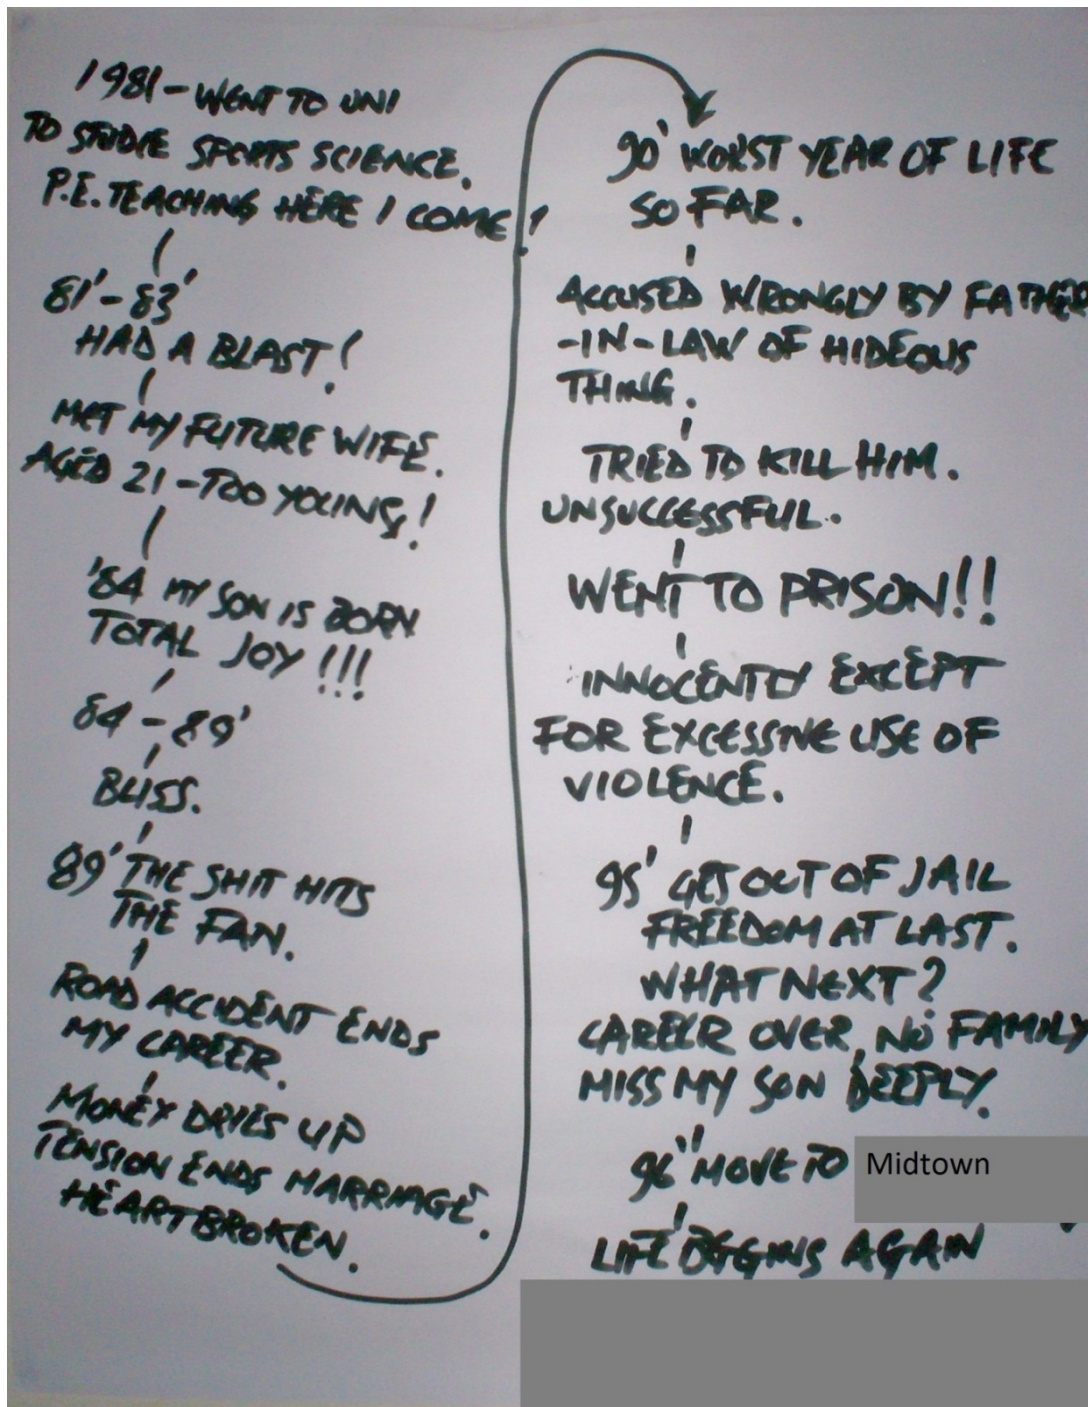 1981 - WENT TO UNI
TO STUDIE SPORTS SCIENCE.
P.E. TEACHING HERE I COME!
81' - 83'
HAD A BLAST!
MET MY FUTURE WIFE.
AGED 21 - TOO YOUNG!
'84 MY SON IS BORN
TOTAL JOY!!!
84 - 89'
BLISS.
89' THE SHIT HITS
THE FAN.
ROAD ACCIDENT ENDS
MY CAREER.
MONEY DRIES UP
TENSION ENDS MARRIAGE.
HEARTBROKEN.
90' WORST YEAR OF LIFE
SO FAR.
ACCUSED WRONGLY BY FATHER
-IN-LAW OF HIDEOUS
THING.
TRIED TO KILL HIM.
UNSUCCESSFUL.
WENT TO PRISON!!
INNOCENTLY EXCEPT
FOR EXCESSIVE USE OF
VIOLENCE.
95' GET OUT OF JAIL
FREEDOM AT LAST.
WHAT NEXT?
CAREER OVER, NO FAMILY
MISS MY SON DEEPLY.
96" MOVE TO Midtown
LIFE BEGINS AGAIN